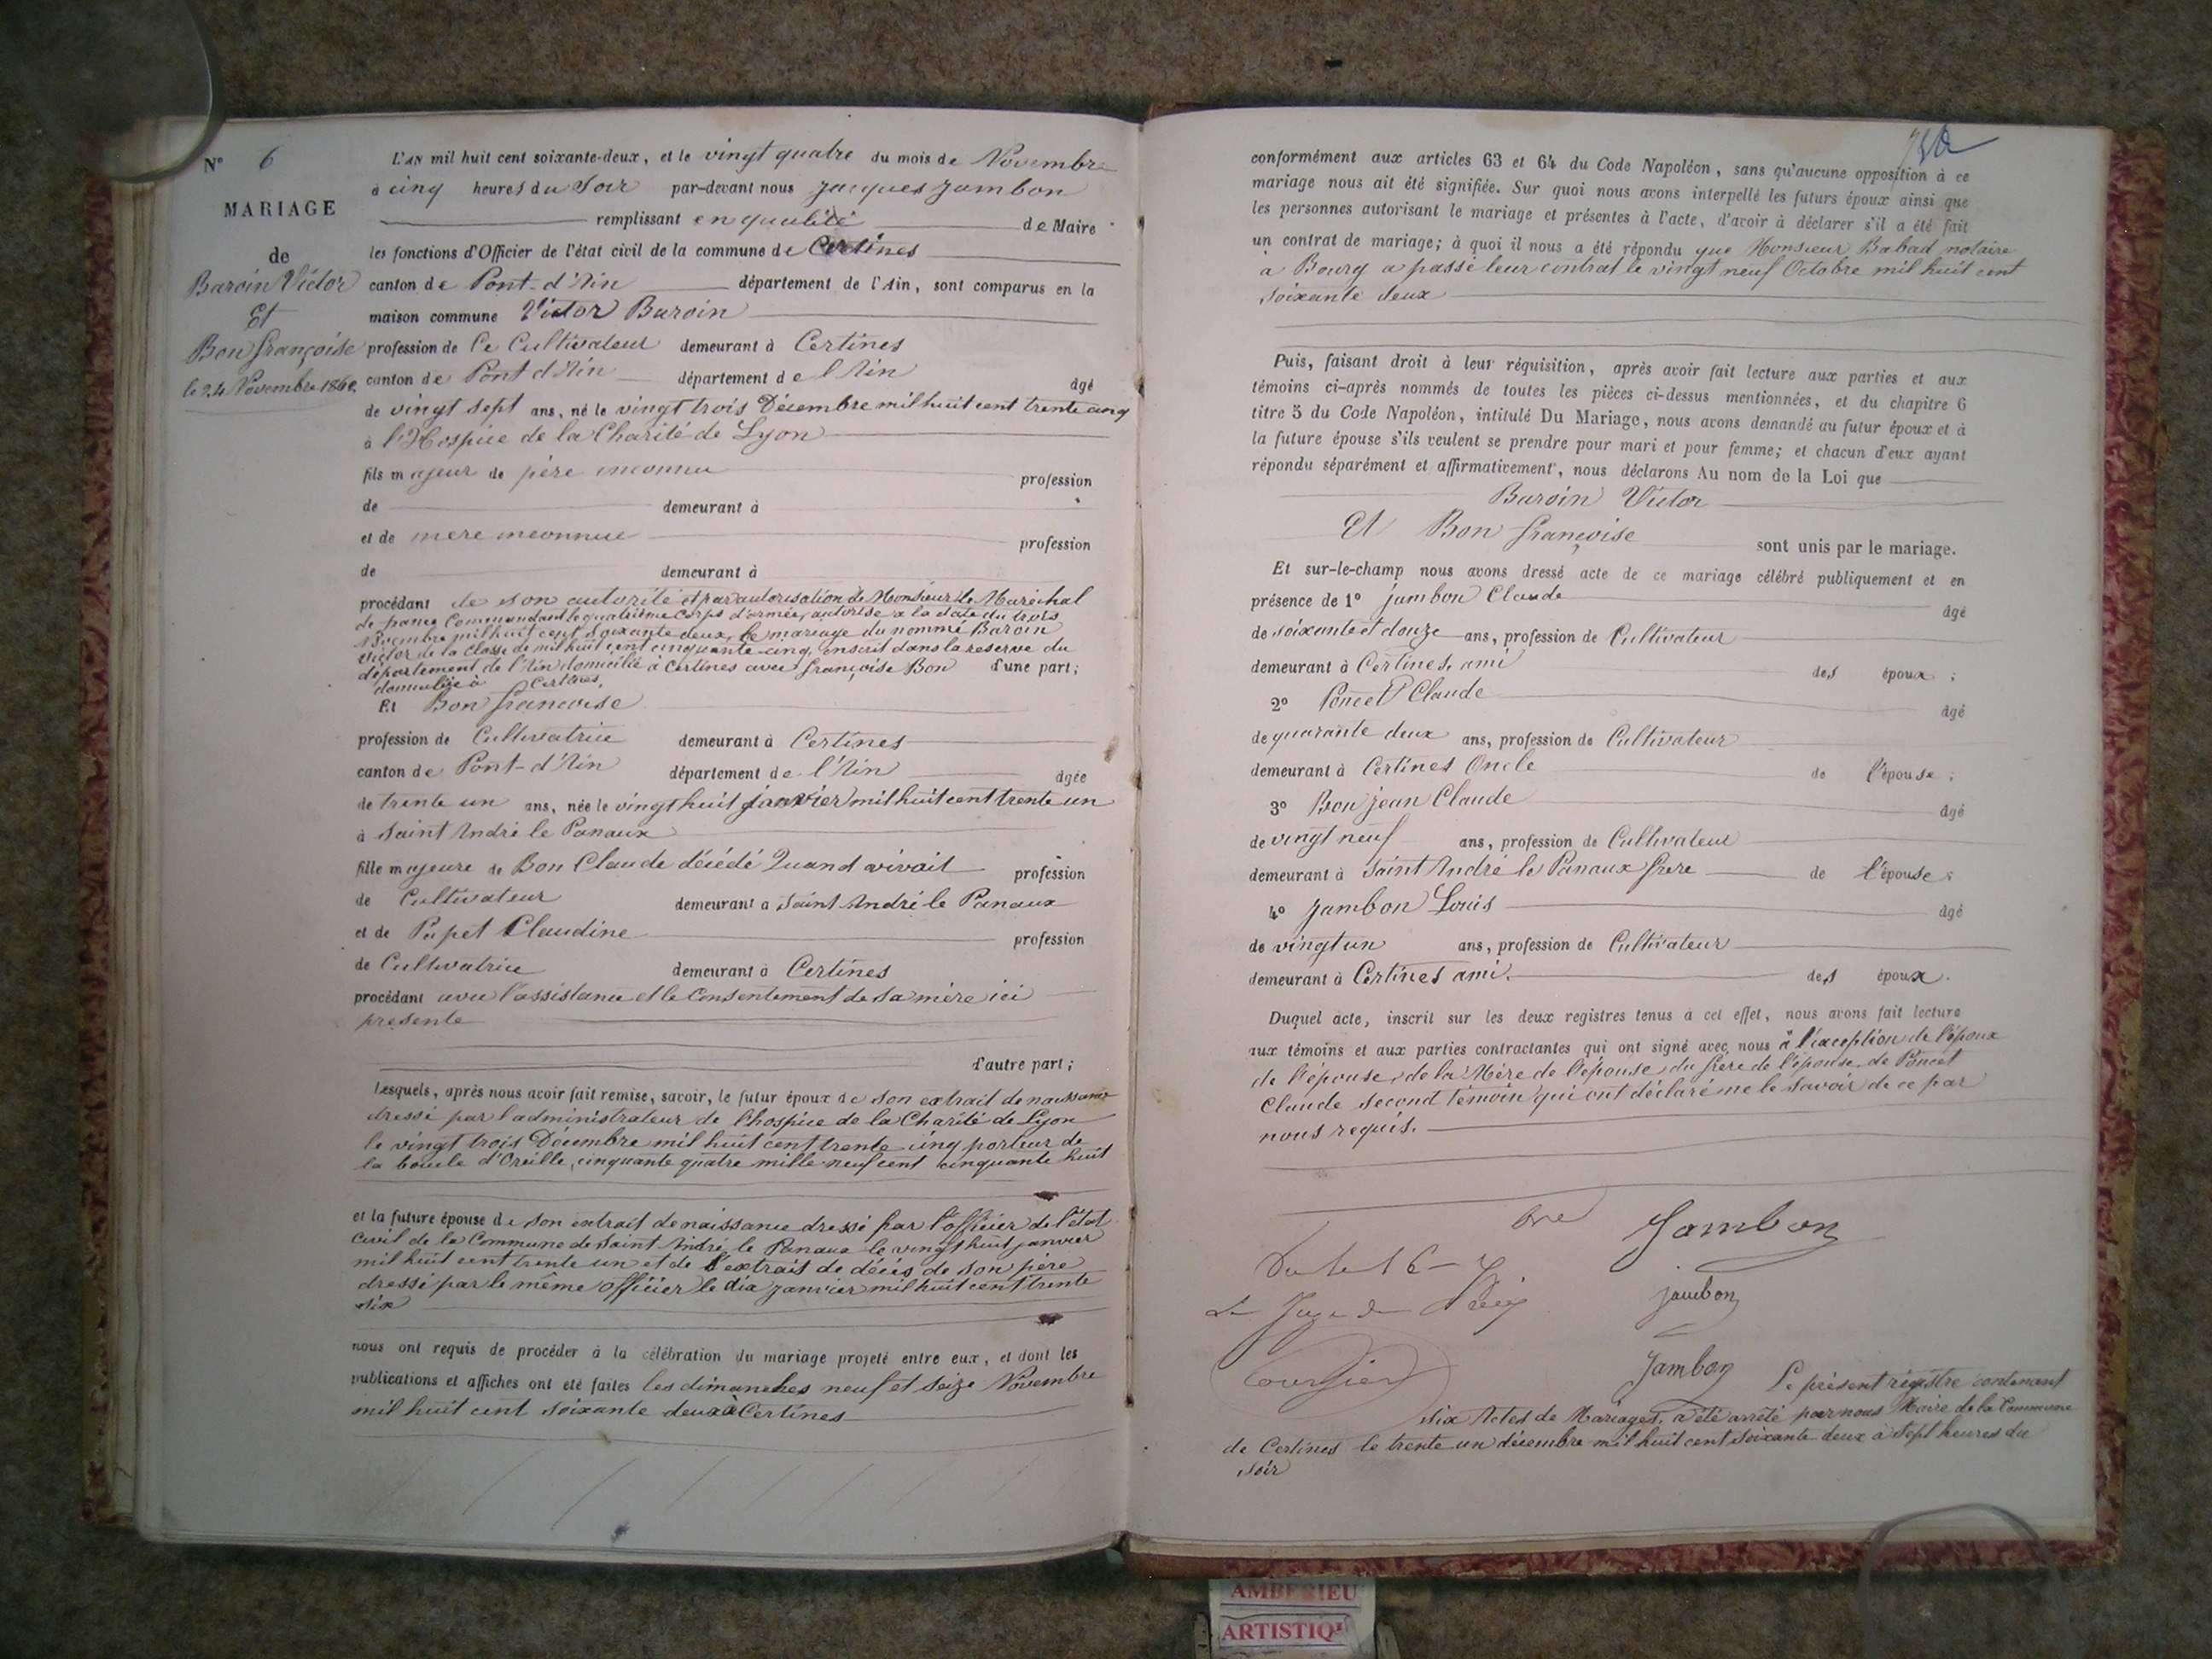 N° 6
MARIAGE
de
Baroin Victor
Et
Bon françoise
le 24 Novembre 1862
L'AN mil huit cent soixante-deux, et le vingt quatre du mois de Novembre
à cinq heures du Soir par-devant nous Jacques Jambon
remplissant en qualité de Maire
les fonctions d'Officier de l'état civil de la commune de Certines
canton de Pont-d'Ain département de l'Ain, sont comparus en la
maison commune Victor Baroin
profession de Ce Cultivateur demeurant à Certines
canton de Pont d'Ain département de l'Ain âgé
de vingt sept ans, né le vingt trois Décembre mil huit cent trente cinq
à l'Hospice de la Charité de Lyon
fils majeur de père inconnu profession
de demeurant à
et de mère inconnue profession
de demeurant à
procédant de son autorité et par autorisation de Monsieur le Maréchal
de france Commandant le quatrième Corps d'armée, autorise a la date du trois
Novembre mil huit cent soixante deux, le mariage du nommé Baroin
Victor de la classe de mil huit cent cinquante cinq, inscrit dans la reserve du
département de l'Ain domicilié à Certines avec françoise Bon d'une part;
domiciliée à Certines,
Et Bon francoise
profession de Cultivatrice demeurant à Certines
canton de Pont-d'Ain département de l'Ain âgée
de trente un ans, née le vingt huit janvier mil huit cent trente un
à Saint André le Panaux
fille majeure de Bon Claude décédé Quand vivait profession
de Cultivateur demeurant a Saint André le Panaux
et de Papet Claudine profession
de Cultivatrice demeurant à Certines
procédant avec l'assistance et le Consentement de sa mère ici
presente
d'autre part;
Lesquels, après nous avoir fait remise, savoir, le futur époux de son extrait de naissance
dressé par l'administrateur de l'hospice de la Charité de Lyon
le vingt trois Décembre mil huit cent trente cinq porteur de
la boucle d'Oreille, cinquante quatre mille neuf cent cinquante huit
et la future épouse de son extrait de naissance dressé par l'officier de l'état
Civil de la Commune de Saint André le Panaux le vingt huit janvier
mil huit cent trente un et de l'extrait de décès de son père
dressé par le même Officier le dix janvier mil huit cent trente
six
nous ont requis de procéder à la célébration du mariage projeté entre eux, et dont les
publications et affiches ont été faites les dimanches neuf et seize Novembre
mil huit cent soixante deux à Certines
conformément aux articles 63 et 64 du Code Napoléon, sans qu'aucune opposition à ce
mariage nous ait été signifiée. Sur quoi nous avons interpellé les futurs époux ainsi que
les personnes autorisant le mariage et présentes à l'acte, d'avoir à déclarer s'il a été fait
un contrat de mariage; à quoi il nous a été répondu que Monsieur Babad notaire
à Bourg a passé leur contrat le vingt neuf Octobre mil huit cent
soixante deux
Puis, faisant droit à leur réquisition, après avoir fait lecture aux parties et aux
témoins ci-après nommés de toutes les pièces ci-dessus mentionnées, et du chapitre 6
titre 5 du Code Napoléon, intitulé Du Mariage, nous avons demandé au futur époux et à
la future épouse s'ils veulent se prendre pour mari et pour femme; et chacun d'eux ayant
répondu séparément et affirmativement, nous déclarons Au nom de la Loi que
Baroin Victor
Et Bon françoise sont unis par le mariage.
Et sur-le-champ nous avons dressé acte de ce mariage célébré publiquement et en
présence de 1° Jambon Claude âgé
de soixante et douze ans, profession de Cultivateur
demeurant à Certines, ami des époux;
2° Poncet Claude âgé
de quarante deux ans, profession de Cultivateur
demeurant à Certines Oncle de l'épouse;
3° Bon jean Claude âgé
de vingt neuf ans, profession de Cultivateur
demeurant à Saint André le Panaux frere de l'épouse;
4° Jambon Louis âgé
de vingt un ans, profession de Cultivateur
demeurant à Certines ami. des époux.
Duquel acte, inscrit sur les deux registres tenus à cet effet, nous avons fait lecture
aux témoins et aux parties contractantes qui ont signé avec nous à l'éxception de l'époux
de l'épouse, de la Mère de l'épouse, du frère de l'épouse, de Poncet
Claude second témoin qui ont déclaré ne le savoir de ce par
nous requis.
Jambon
jambon
Jambon
Le présent régistre contenant
six Actes de Mariages, a été arrêté par nous Maire de la Commune
de Certines le trente un décembre mil huit cent soixante deux à sept heures du
soir
AMBERIEU
ARTISTIQ